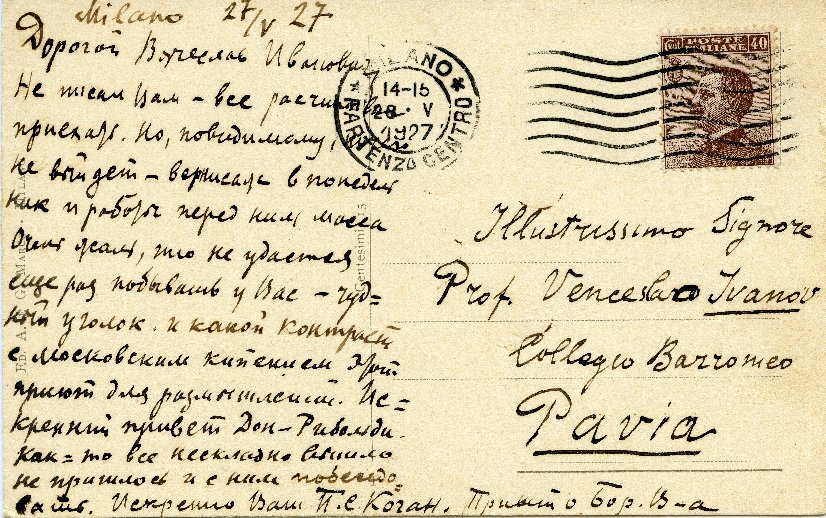 Milano 27/V 27
Дорогой Вячеслав Иванович,
Не писал Вам – все рассчитывал
приехать. Но, повидимому,
не выйдет – вернисаж в понедель
ник и работы перед ним масса
Очень жаль, что не удастся
еще раз побывать у Вас – чуд=
ный уголок. и какой контраст
с московским кипением этот
приют для размышлений. Ис=
кренний привет Дон-Рибольди.
Как=то все нескладно вышло
не пришлось и с ним побеседо=
вать. Искренно Ваш П.С. Коган. Привет о Бор. В-а
MILANO
14-15
28 V
1927
PARTENZA CENTRO
POSTE ITALIANE
40
Illustrissimo Signore
Prof. Venceslao Ivanov
Collegio Barromeo
Pavia